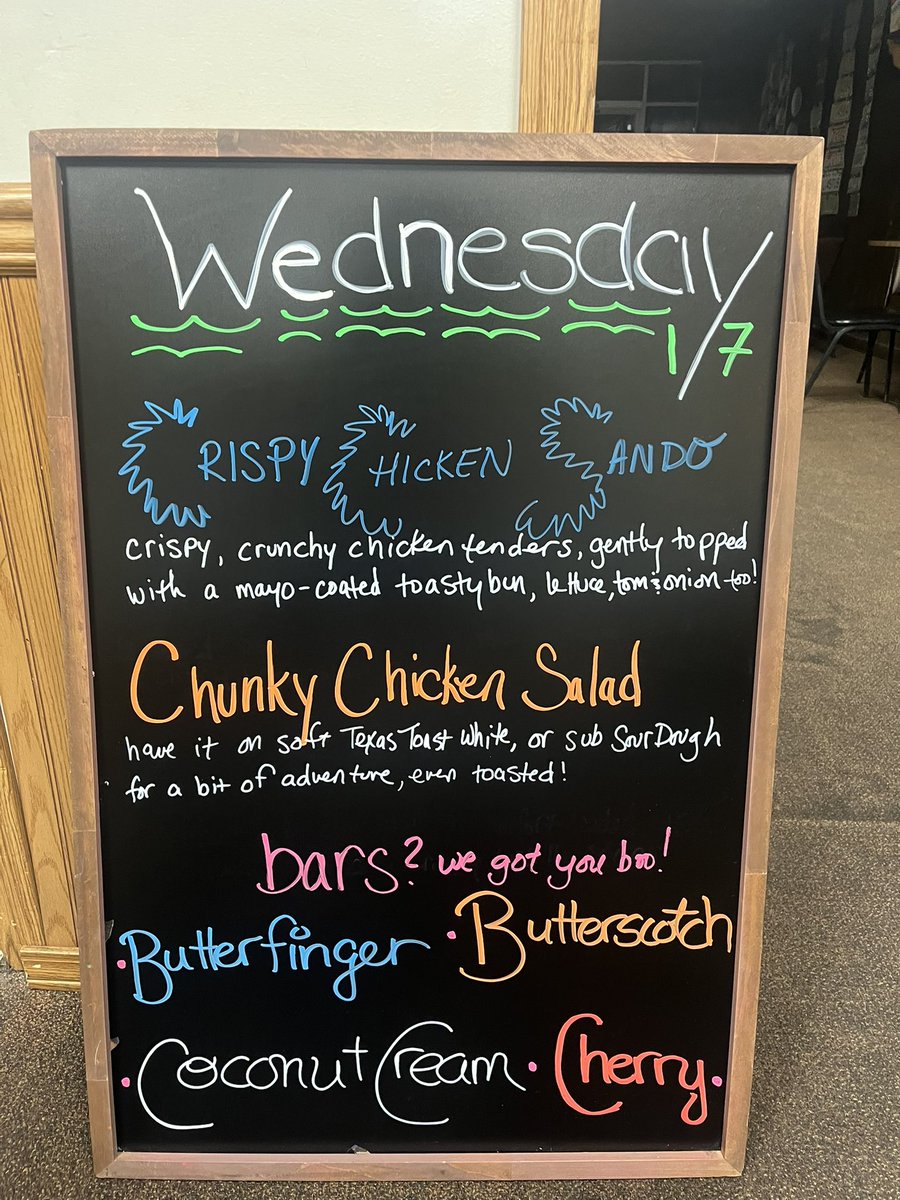 Wednesday
1/7
CRISPY CHICKEN SANDO
crispy, crunchy chicken tenders, gently topped
with a mayo-coated toasty bun, lettuce, tom & onion too!
Chunky Chicken Salad
have it on soft Texas Toast White, or sub SourDough
for a bit of adventure, even toasted!
bars? we got you boo!
• Butterfinger • Butterscotch
• Coconut Cream • Cherry •